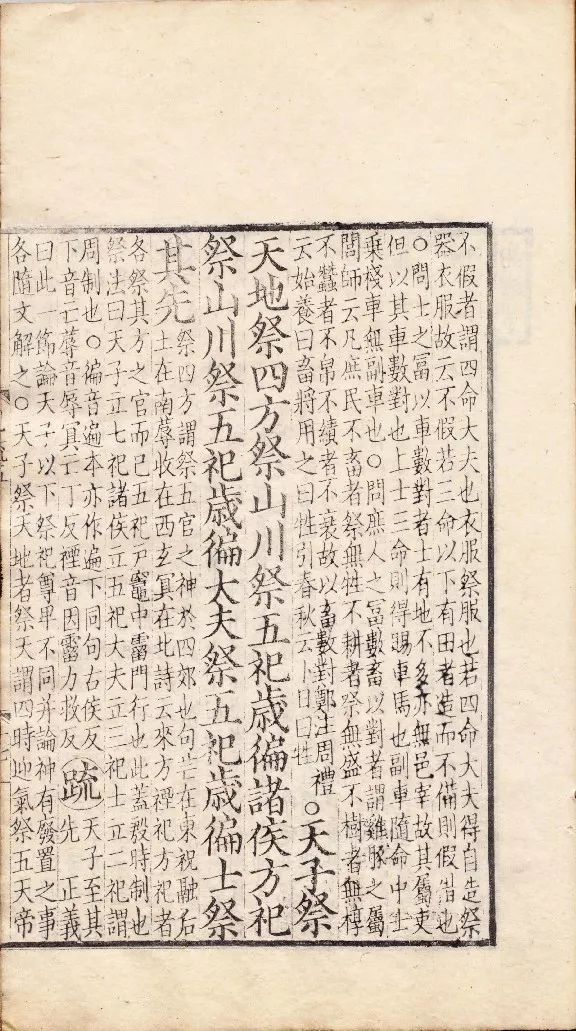 不假者謂四命大夫也衣服祭服也若四命大夫得自造祭
器衣服故云不假若三命以下有田者造而不備則假借也
○問士之冨以車數對者士有地不多亦無邑宰故其屬吏
但以其車數對也上士三命則得賜車馬也副車隨命中士
乗棧車無副車也○問庶人之冨數畜以對者謂雞豚之屬
閭師云凡庶民不畜者祭無牲不耕者祭無盛不樹者無椁
不蠶者不帛不績者不衰故以畜數對鄭注周禮
云始養曰畜將用之曰牲引春秋云卜日曰牲
○天子祭
天地祭四方祭山川祭五祀歳徧諸侯方祀
祭山川祭五祀歳徧大夫祭五祀歳徧士祭
其先
祭四方謂祭五官之神於四郊也句芒在東祝融后
土在南蓐收在西玄冥在北詩云來方禋祀方祀者
各祭其方之官而已五祀戸竈中霤門行也此蓋殷時制也
祭法曰天子立七祀諸侯立五祀大夫立三祀士立二祀謂
周制也○徧音遍本亦作遍下同句右侯反
下音亡蓐音辱冥亡丁反禋音因霤力救反
疏
天子至其
先　正義
曰此一節論天子以下祭祀尊卑不同并論神有廢置之事
各隨文解之○天子祭天地者祭天謂四時迎氣祭五天帝